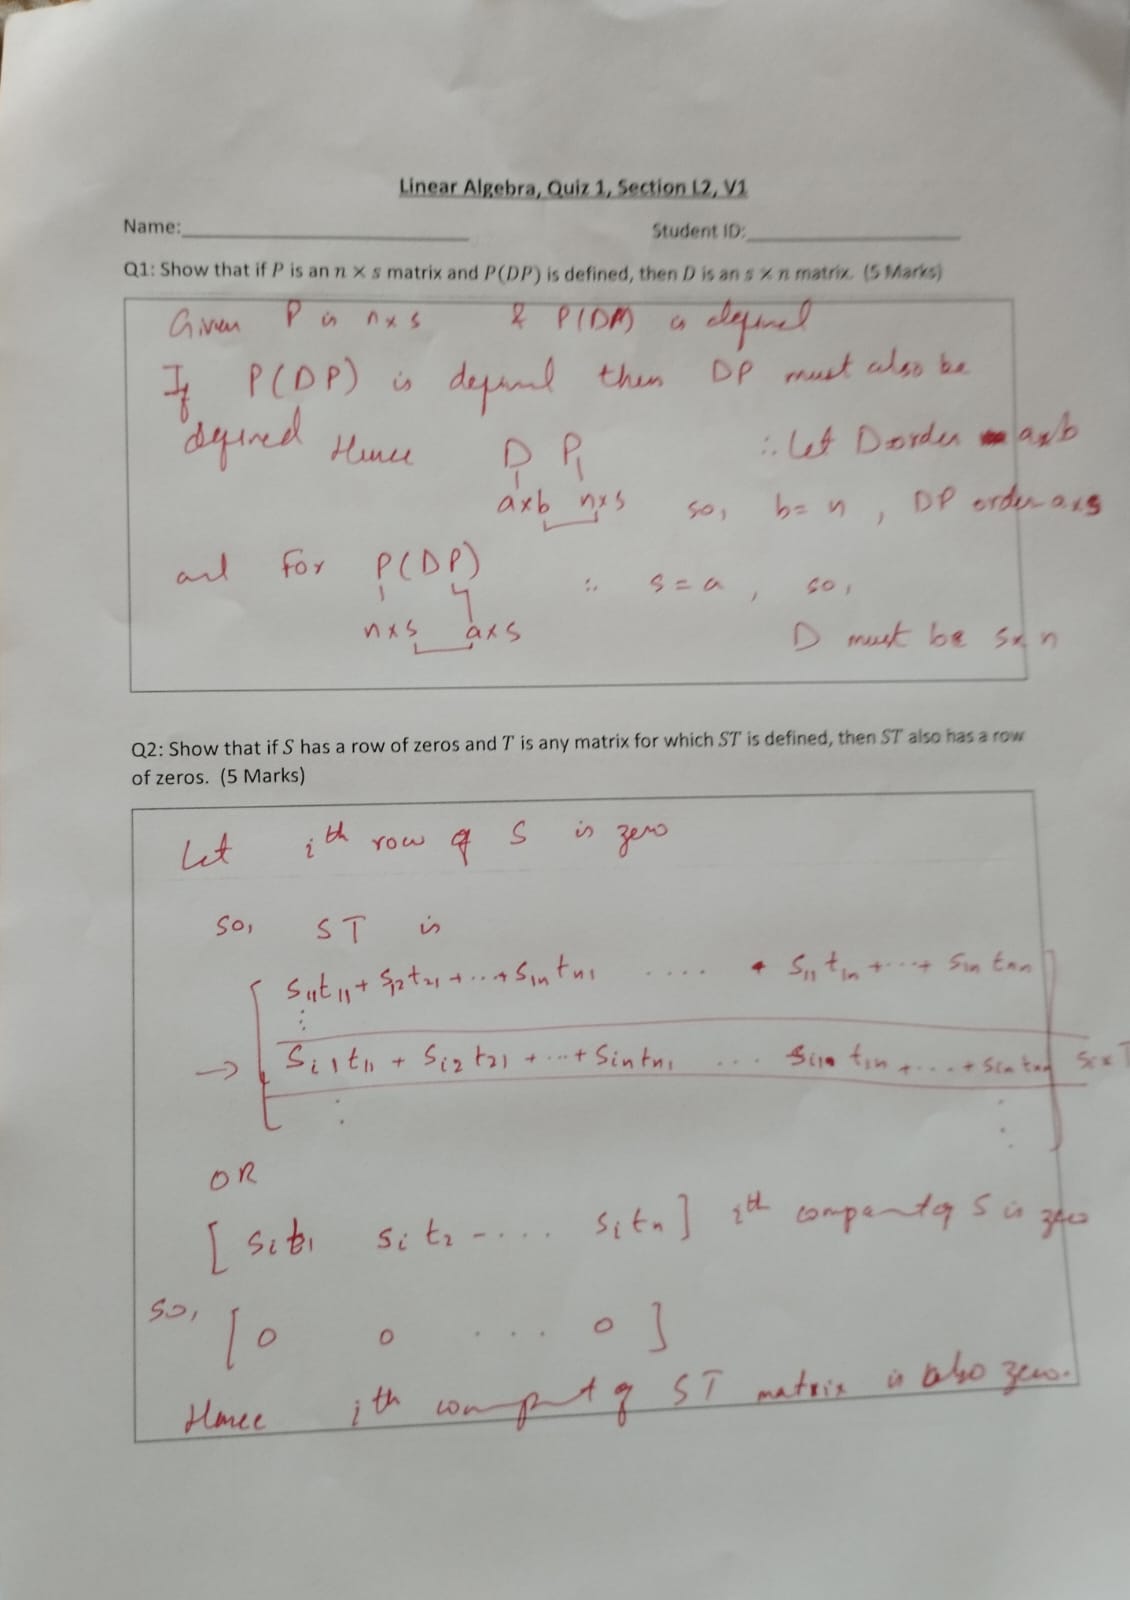 Linear Algebra, Quiz 1, Section L2, V1
Name: Student ID:
Q1: Show that if P is an n × s matrix and P(DP) is defined, then D is an s × n matrix. (5 Marks)
Given P is n×s & P(DP) is defined
If P(DP) is defined then DP must also be
defined Hence D P ∴ Let D order a×b
a×b n×s so, b = n , DP order a×s
and For P(DP) ∴ s = a , so,
n×s a×s D must be s×n
Q2: Show that if S has a row of zeros and T is any matrix for which ST is defined, then ST also has a row
of zeros. (5 Marks)
Let ith row of S is zero
so, ST is
[ S11t11 + S12t21 + ... + S1ntn1 .... S11t1n + ... + S1ntnn ]
⋮
→ Si1t11 + Si2t21 + ... + Sintn1 ... Si1t1n + ... + Sintnn
⋮ ⋮
OR
[ Sit1 Sit2 - .... Sitn ] ith component of S is zero
so, [ 0 0 .... 0 ]
Hence ith component of ST matrix is also zero.